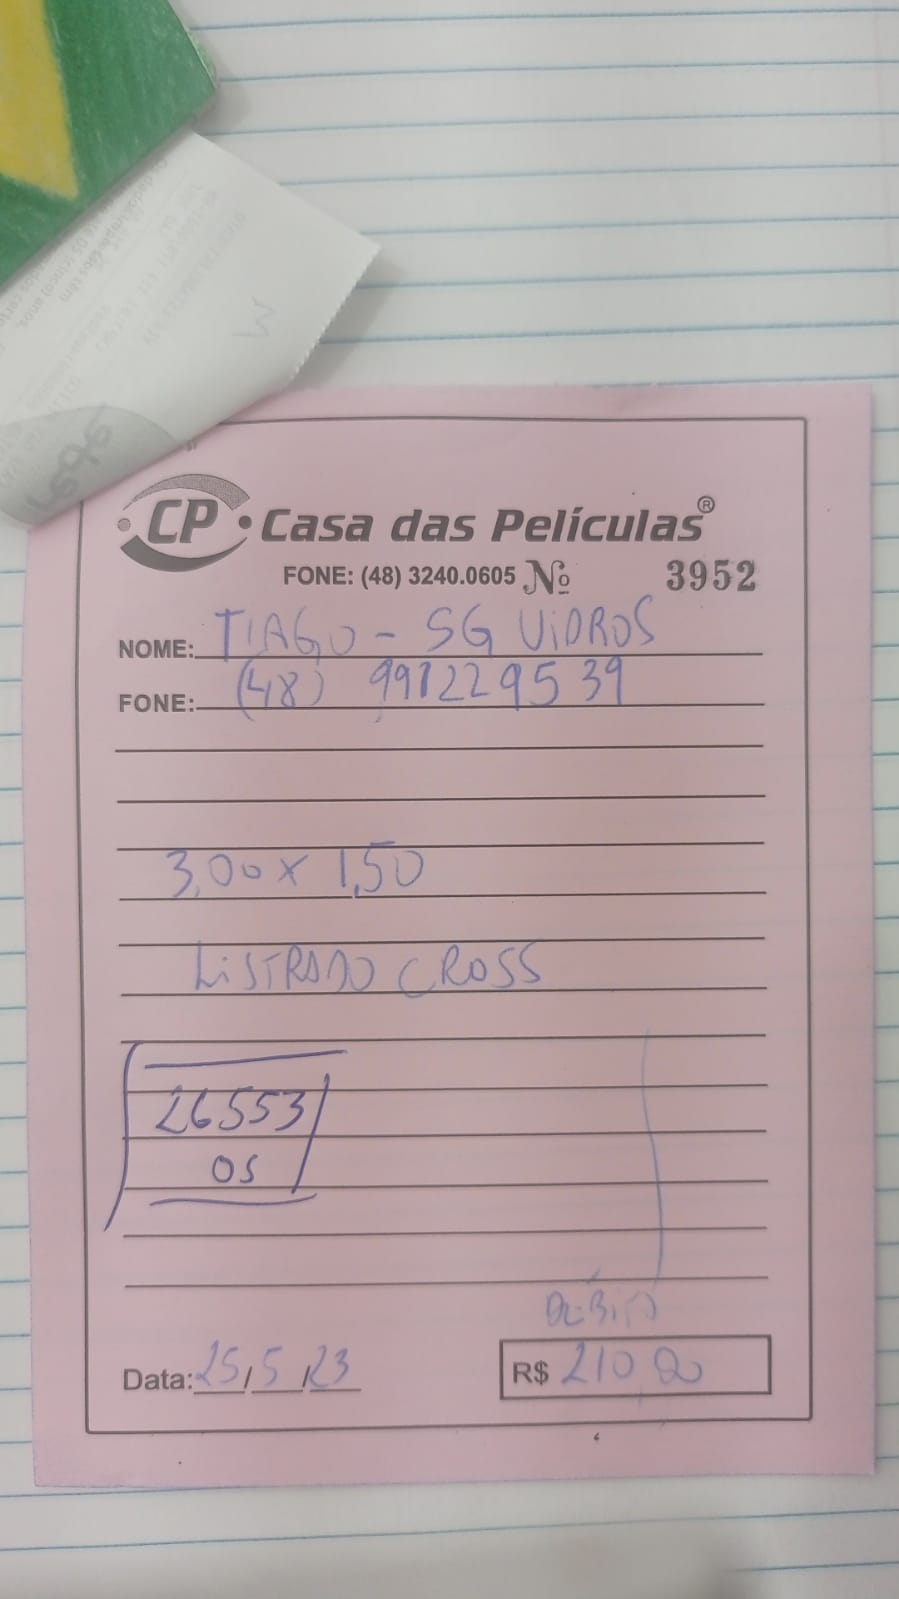 CP Casa das Películas®
FONE: (48) 3240.0605 Nº 3952
NOME: TIAGO - SG VIDROS
FONE: (48) 991229539
3,00 x 1,50
LISTRADO CROSS
26553
OS
DÉBITO
Data: 25/5/23 R$ 210,00